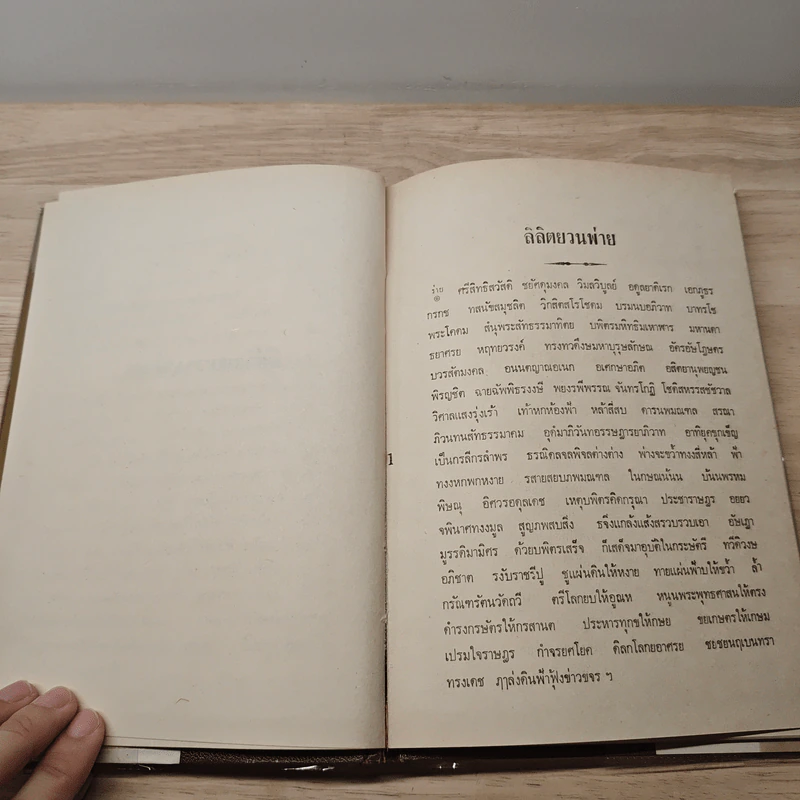 ลิลิตยวนพ่าย
ร่าย ศรีสิทธิสวัสดิ ชยัศดุมงคล วิมลวิบูลย์ อดูลยาดิเรก เอกภูธร
กรกช ทสนัขสมุชลิต วิกสิตสโรโชดม บรมนบอภิวาท บาทรโช
๑
พระโคดม สํนุพระสัทธรรมาทิตย บพิตรมหิทธิมเหาฬาร มหานดา
ธยาศรย หฤทยวรงค์ ทรงทวดึงษมหาบุรุษลักษณ อัครอัษโฎษดร
บวรสัตมงคล อนนตญาณอเนก อเศกษาอภิต อสิตยานุพยญชน
พิรญชิต ฉายฉัพพิธรงงษี พยงรพีพรรณ จันทรโกฏิ โชติสหรรสชัชวาล
วิศาลแสงรุ่งเร้า เท้าหกห้องฟ้า หล้าสี่สบ ดารนพมณฑล สรณา
ภิวนทนสัทธรรมาคม อุดํมาภิวันทอรรษฎารยาภิวาท อาทิยุคขุกเข็ญ
เป็นกรลีกรลำพร ธรณีดลจลพิจลต่างต่าง พ่างจะขว้ำทงงสี่หล้า ฟ้า
1
ทงงหกพกหงาย รสายสยบภพมณฑล ในกษณน้นน บ้นนพรหม
พิษณุ อิศวรอดุลเดช เหตุบพิตรคิดกรุณา ประชาราษฎร อยยว
จพินาศทงงมูล สูญภพสบสิ่ง ธจึงแกล้งแส้งสรวบรวบเอา อัษเฎา
มูรรติมามิศร ด้วยบพิตรเสร็จ ก็เสด็จมาอุบัติในกระษัตรี ทวีดิวงษ
อภิชาต รงับราชรีปู ชูแผ่นดินให้หงาย ทายแผ่นฟ้าบให้ขว้ำ ล้ำ
กรัณฑรัตนวัตถวี ตรีโลกยบให้อูณห หนูนพระพุทธศาสนให้ตรง
ดำรงกรษัตรให้กรสานต ประหารทุกขให้กษย ขยเกษตรให้เกษม
เปรมใจราษฎร กำจรยศโยค ดิลกโลกยอาศรย ชยชยนฤเบนทรา
ทรงเดช ฦๅล่งดินฟ้าฟุ้งข่าวขจร ฯ